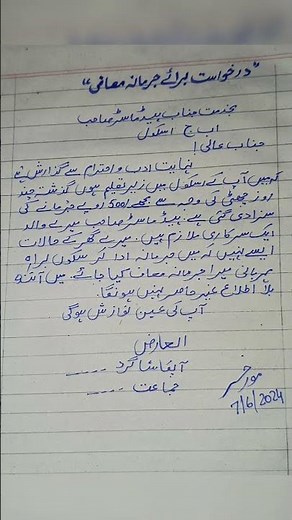 "درخواست برائے جرمانہ معافی"
بخدمت جناب ہیڈ ماسٹر صاحب
اب ج اسکول
جناب عالی!
نہایت ادب و احترام سے گزارش ہے
کہ میں آپ کے اسکول میں زیر تعلیم ہوں گذشتہ چند
روز چھٹی کی وجہ سے مجھے 500 روپے جرمانے کی
سزا دی گئی ہے۔ ہیڈ ماسٹر صاحب میرے والد
ایک سرکاری ملازم ہیں۔ میرے گھر کے حالات
ایسے نہیں کہ میں جرمانہ ادا کر سکوں براہ
مہربانی میرا جرمانہ معاف کیا جائے۔ میں آئندہ
بلا اطلاع غیر حاضر نہیں ہونگا۔
آپ کی عین نوازش ہوگی
العارض
آپکا شاگرد ----
جماعت ----
مورخہ
7/6/2024